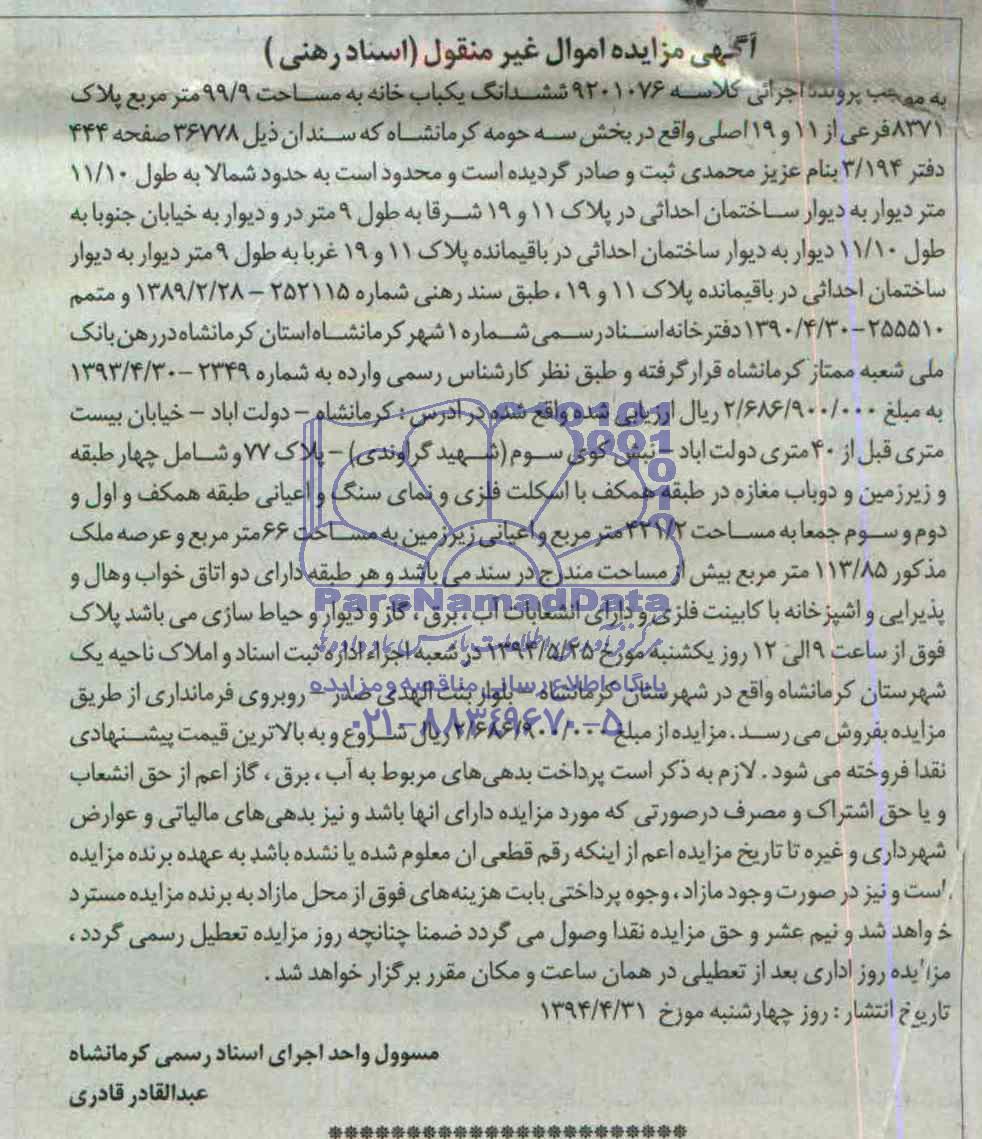 آگهی مزایده اموال غیر منقول (اسناد رهنی)
به موجب پرونده اجرائی کلاسه ۹۲۰۱۰۷۶ ششدانگ یکباب خانه به مساحت ۹۹/۹ متر مربع پلاک
۸۳۷۱ فرعی از ۱۱ و ۱۹ اصلی واقع در بخش سه حومه کرمانشاه که سند ان ذیل ۳۶۷۷۸ صفحه ۴۴۴
دفتر ۳/۱۹۴ بنام عزیز محمدی ثبت و صادر گردیده است و محدود است به حدود شمالا به طول ۱۱/۱۰
متر دیوار به دیوار ساختمان احداثی در پلاک ۱۱ و ۱۹ شرقا به طول ۹ متر در و دیوار به خیابان جنوبا به
طول ۱۱/۱۰ دیوار به دیوار ساختمان احداثی در باقیمانده پلاک ۱۱ و ۱۹ غربا به طول ۹ متر دیوار به دیوار
ساختمان احداثی در باقیمانده پلاک ۱۱ و ۱۹ ، طبق سند رهنی شماره ۲۵۲۱۱۵ – ۱۳۸۹/۲/۲۸ و متمم
۲۵۵۵۱۰ – ۱۳۹۰/۴/۳۰ دفترخانه اسناد رسمی شماره ۱ شهر کرمانشاه استان کرمانشاه در رهن بانک
ملی شعبه ممتاز کرمانشاه قرار گرفته و طبق نظر کارشناس رسمی وارده به شماره ۲۳۴۹ – ۱۳۹۳/۴/۳۰
به مبلغ ۲/۶۸۶/۹۰۰/۰۰۰ ریال ارزیابی شده واقع شده در ادرس : کرمانشاه – دولت اباد – خیابان بیست
متری قبل از ۴۰ متری دولت اباد – نبش کوی سوم (شهید گراوندی) – پلاک ۷۷ و شامل چهار طبقه
و زیرزمین و دوباب مغازه در طبقه همکف با اسکلت فلزی و نمای سنگ و اعیانی طبقه همکف و اول و
دوم و سوم جمعا به مساحت ۴۲۱/۲ متر مربع و اعیانی زیرزمین به مساحت ۶۶ متر مربع و عرصه ملک
مذکور ۱۱۳/۸۵ متر مربع بیش از مساحت مندرج در سند می باشد و هر طبقه دارای دو اتاق خواب و هال و
پذیرایی و اشپزخانه با کابینت فلزی و دارای انشعابات آب ، برق ، گاز و دیوار و حیاط سازی می باشد پلاک
فوق از ساعت ۹ الی ۱۲ روز یکشنبه مورخ ۱۳۹۴/۵/۲۵ در شعبه اجراء اداره ثبت اسناد و املاک ناحیه یک
شهرستان کرمانشاه واقع در شهرستان کرمانشاه – بلوار بنت الهدی صدر – روبروی فرمانداری از طریق
مزایده بفروش می رسد . مزایده از مبلغ ۲/۶۸۶/۹۰۰/۰۰۰ ریال شروع و به بالاترین قیمت پیشنهادی
نقدا فروخته می شود . لازم به ذکر است پرداخت بدهی های مربوط به آب ، برق ، گاز اعم از حق انشعاب
و یا حق اشتراک و مصرف درصورتی که مورد مزایده دارای انها باشد و نیز بدهی های مالیاتی و عوارض
شهرداری و غیره تا تاریخ مزایده اعم از اینکه رقم قطعی ان معلوم شده یا نشده باشد به عهده برنده مزایده
است و نیز در صورت وجود مازاد ، وجوه پرداختی بابت هزینه های فوق از محل مازاد به برنده مزایده مسترد
خواهد شد و نیم عشر و حق مزایده نقدا وصول می گردد ضمنا چنانچه روز مزایده تعطیل رسمی گردد ،
مزایده روز اداری بعد از تعطیلی در همان ساعت و مکان مقرر برگزار خواهد شد .
تاریخ انتشار : روز چهارشنبه مورخ ۱۳۹۴/۴/۳۱
مسوول واحد اجرای اسناد رسمی کرمانشاه
عبدالقادر قادری
ParsNamadData
پایگاه اطلاع رسانی مناقصه و مزایده
۰۲۱-۸۸۳۴۹۶۷۰-۵